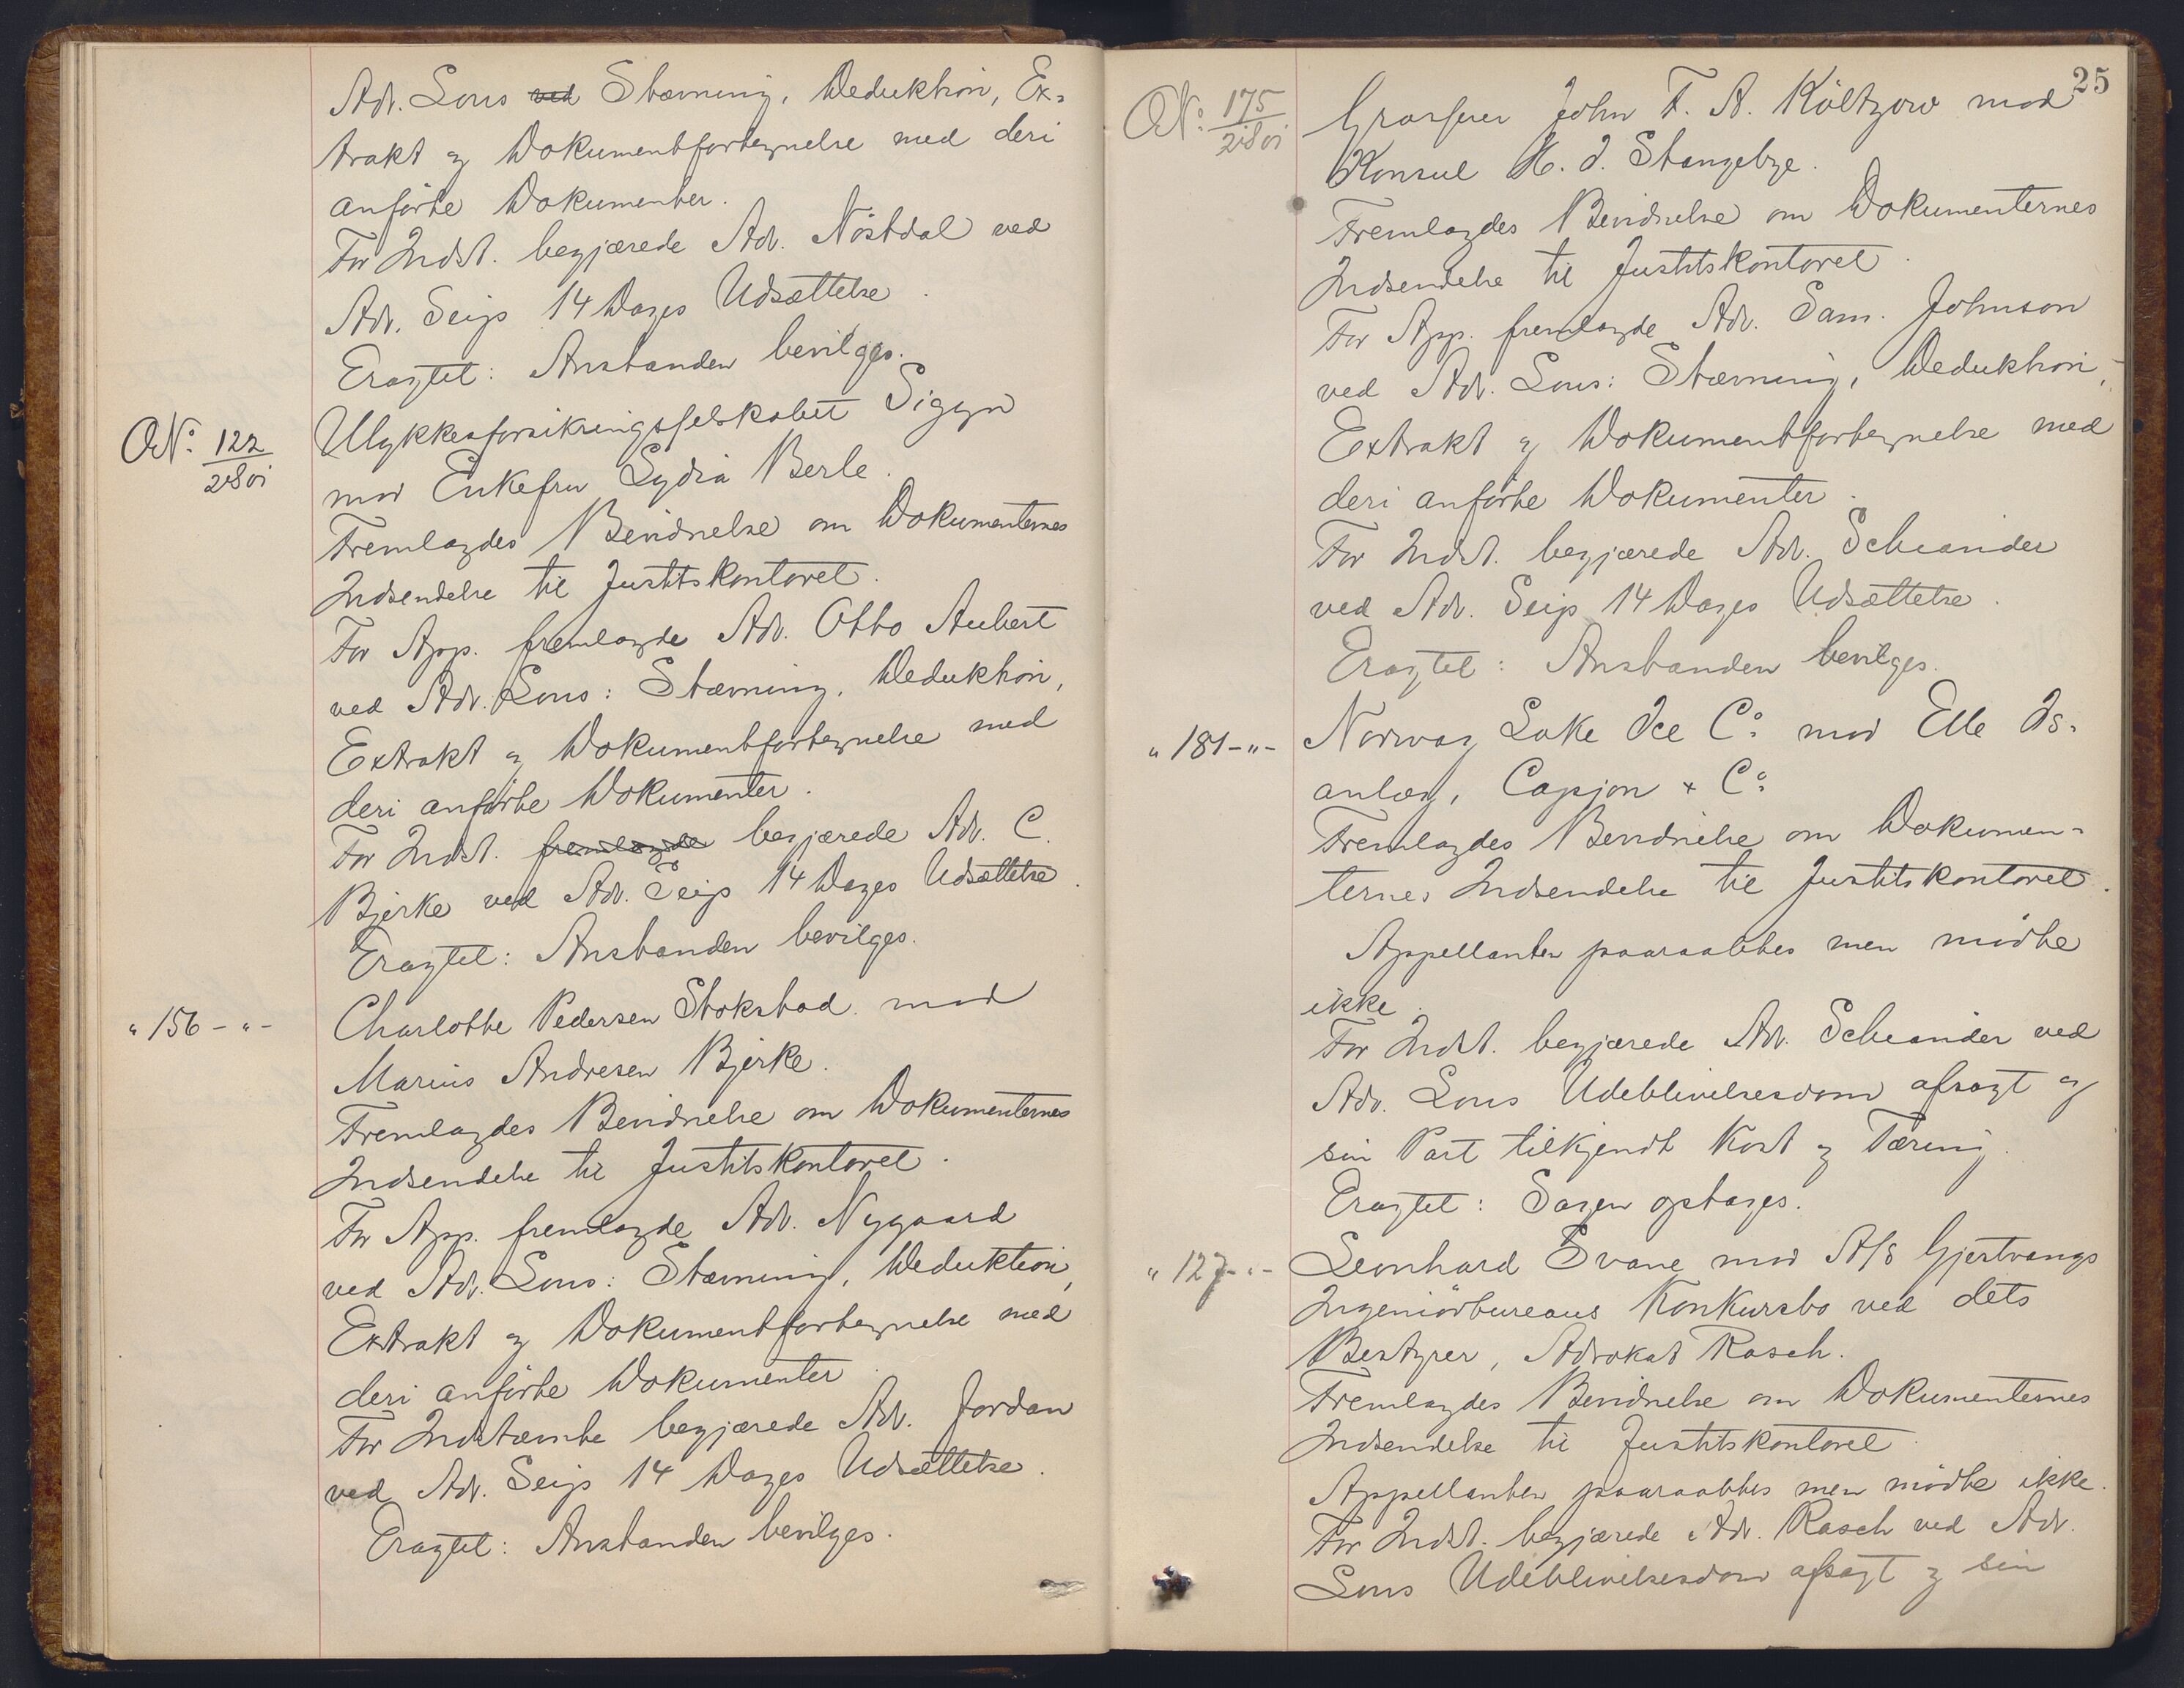 Adv. Lous ved Stævning, Deduktion, Ex-
trakt og Dokumentfortegnelse med deri
anførte Dokumenter.
For Indst. begjærede Adv. Nöstdal ved
Adv. Seip 14 Dages Udsættelse.
Eragtet: Anstanden bevilges.
No. 122
2 S 01
Ulykkesforsikringsselskabet Sigyn
mod Enkefru Lydia Berle.
Fremlagdes Bevidnelse om Dokumenternes
Indsendelse til Justitskontoret.
For App. fremlagde Adv. Otto Aubert
ved Adv. Lous: Stævning, Deduktion,
Extrakt og Dokumentfortegnelse med
deri anførte Dokumenter.
For Indst. fremlagde begjærede Adv. C.
Bjerke ved Adv. Seip 14 Dages Udsættelse.
Eragtet: Anstanden bevilges.
" 156 - " -
Charlotte Pedersen Stokstad mod
Marius Andresen Bjerke.
Fremlagdes Bevidnelse om Dokumenternes
Indsendelse til Justitskontoret.
For App. fremlagde Adv. Nygaard
ved Adv. Lous: Stævning, Deduktion,
Extrakt og Dokumentfortegnelse med
deri anførte Dokumenter.
For Indstævnte begjærede Adv. Jordan
ved Adv. Seip 14 Dages Udsættelse.
Eragtet: Anstanden bevilges.
25
No. 175
2 S 01
Grosserer John F. A. Költzow mod
Konsul H. J. Stangebye.
Fremlagdes Bevidnelse om Dokumenternes
Indsendelse til Justitskontoret.
For App. fremlagde Adv. Sam. Johnson
ved Adv. Lous: Stævning, Deduktion,
Extrakt og Dokumentfortegnelse med
deri anførte Dokumenter.
For Indst. begjærede Adv. Scheander
ved Adv. Seip 14 Dages Udsættelse.
Eragtet: Anstanden bevilges.
" 181 - " -
Norway Lake Ice Co. mod Elle Is-
anlæg, Capjon + Co.
Fremlagdes Bevidnelse om Dokumen-
ternes Indsendelse til Justitskontoret.
Appellanten paaraabtes men mødte
ikke.
For Indst. begjærede Adv. Scheander ved
Adv. Lous Udeblivelsesdom afsagt og
sin Part tilkjendt Kost og Tæring.
Eragtet: Sagen optages.
" 127 - " -
Leonhard Svane mod A/S Gjertvangs
Ingeniörbureaus Konkursbo ved dets
Bestyrer, Advokat Rasch.
Fremlagdes Bevidnelse om Dokumenternes
Indsendelse til Justitskontoret.
Appellanten paaraabtes men mødte ikke.
For Indst. begjærede Adv. Rasch ved Adv.
Lous Udeblivelsesdom afsagt og sin